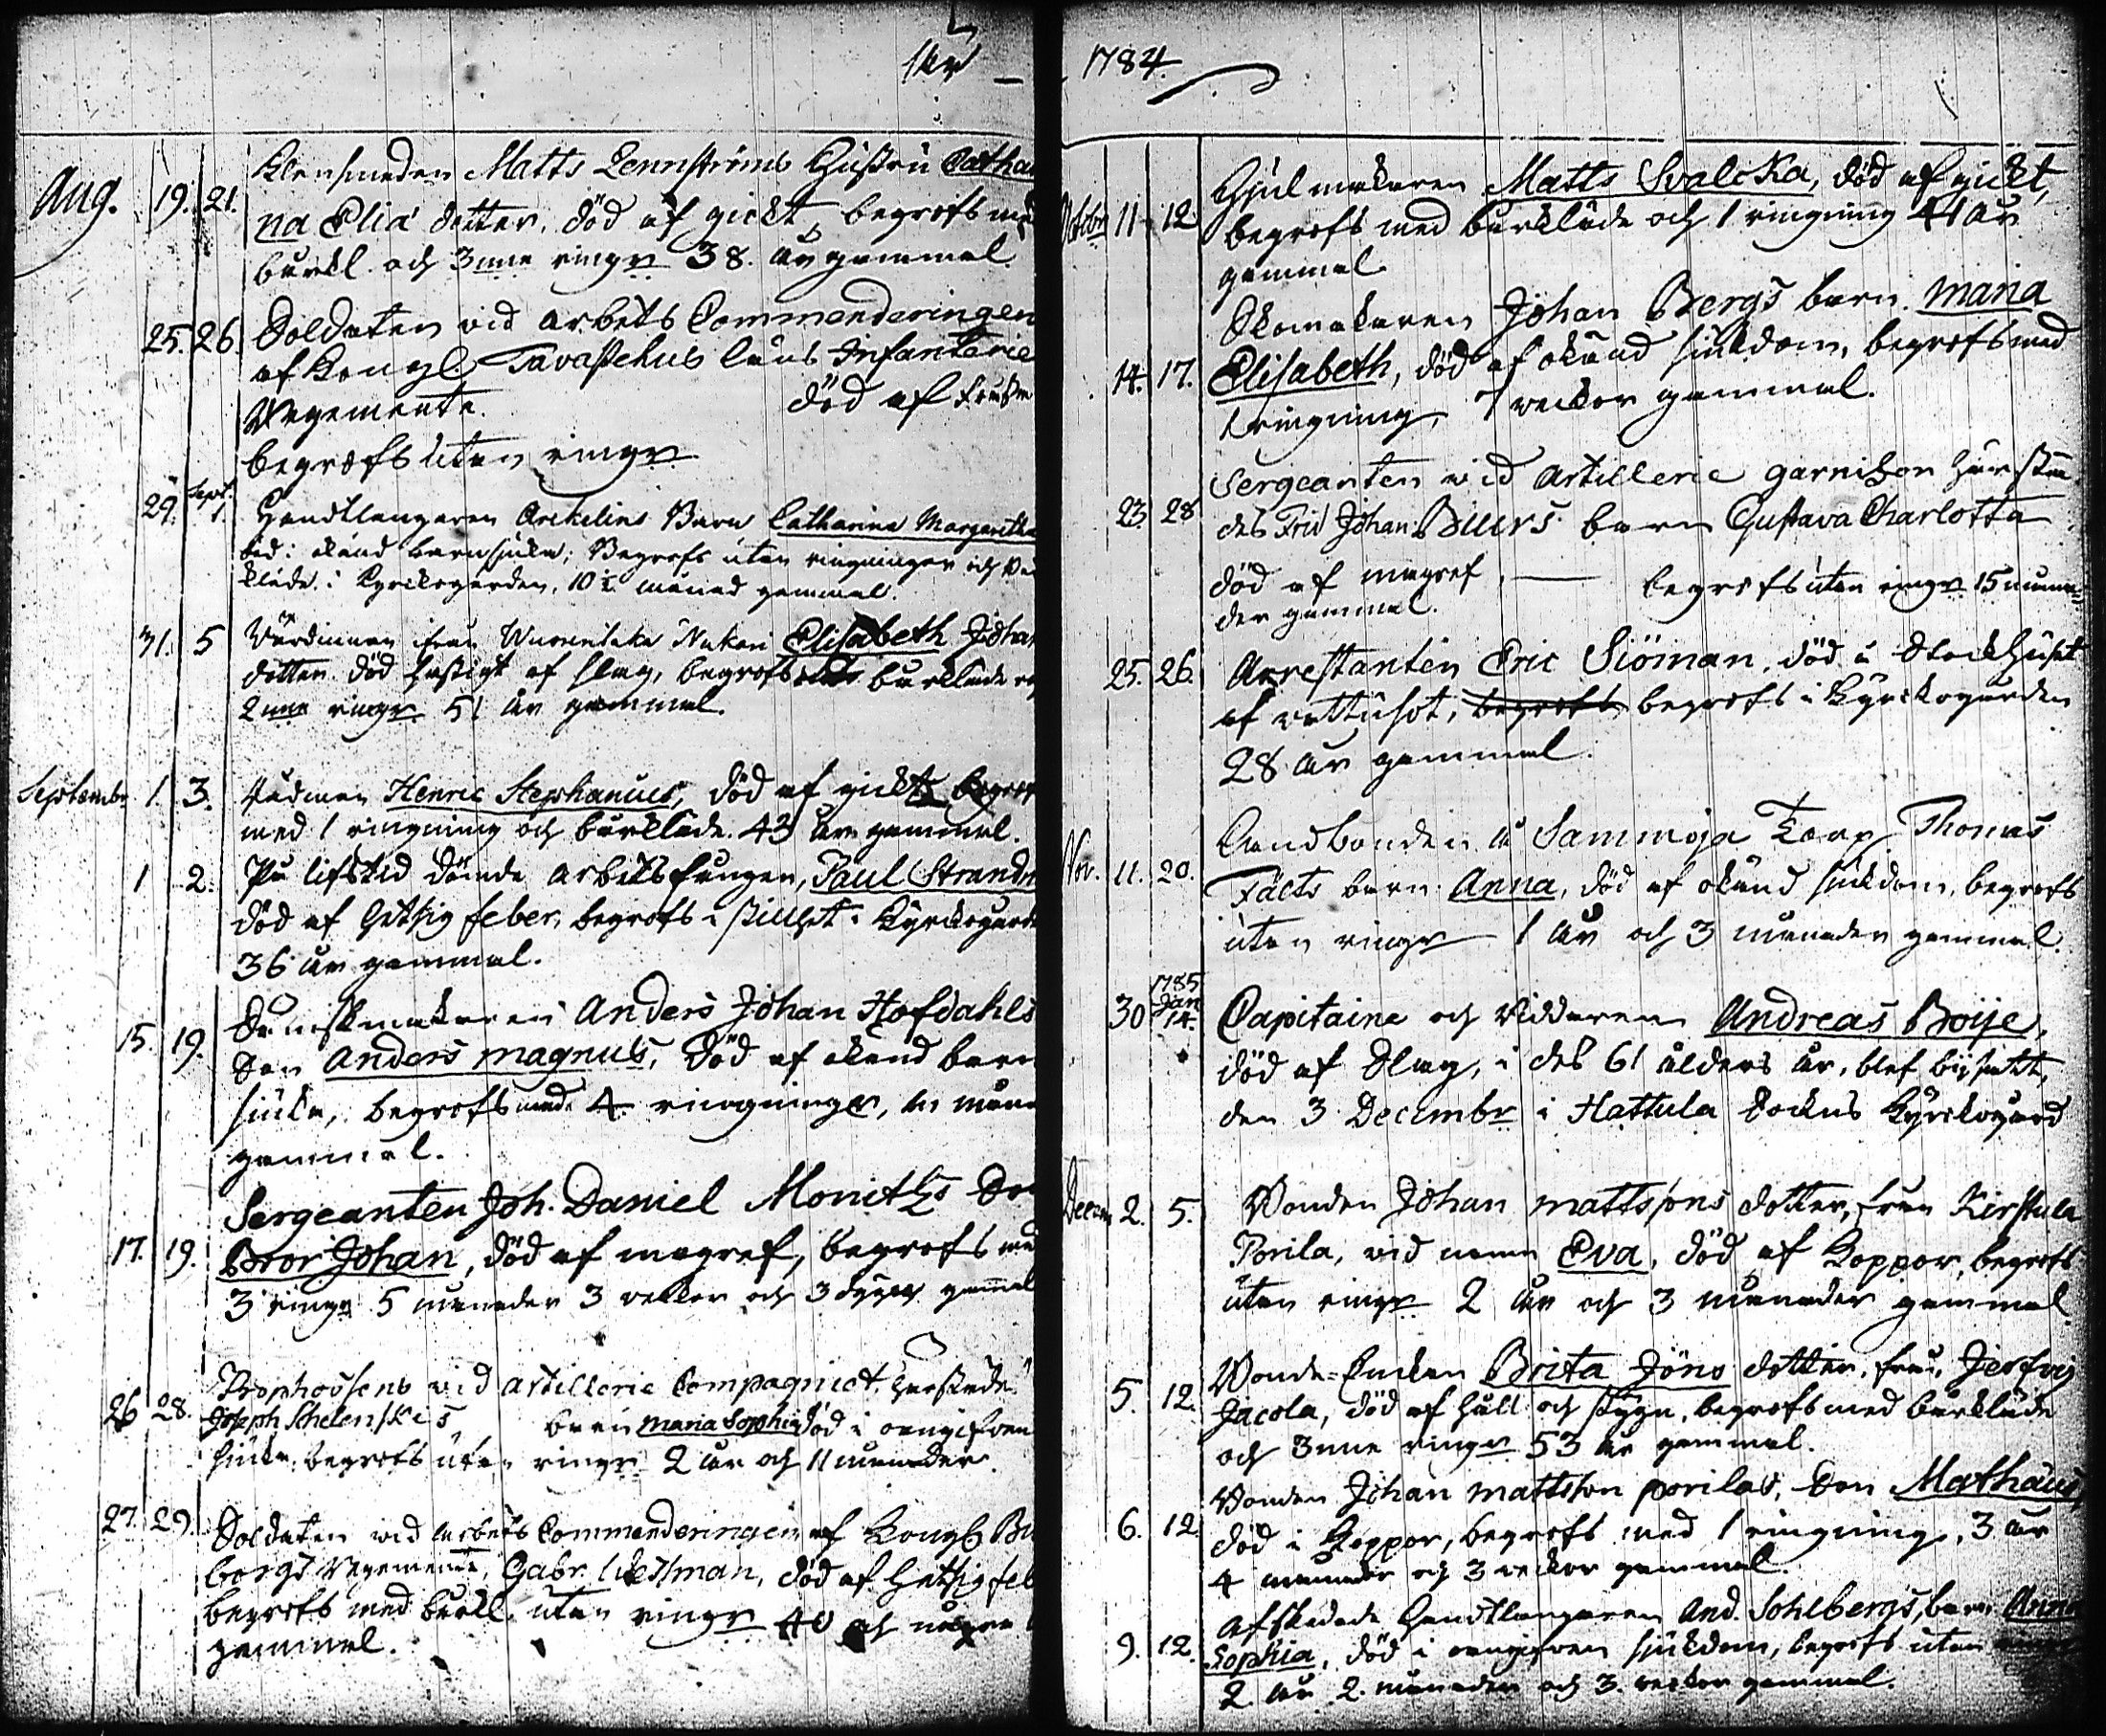 åhr – 1784
Klensmeden Matts Lennströms Hustru Catha
Aug. 19. 21. na Elia dotter, död af gickt, begrofs med
bårkl. och 3nne ringr 38. år gammal.
25. 26. Soldaten vid arbets Commenderingen
af Kongl. Tavastehus läns Infanterie
Regemente. död af
begrofs utan ringr
29. Sept. 1. Handtlangaren Archelins Barn Catharina Margaretha
död: okänd barnsjuka; Begrofs utan ringningar och
kläde. i Kyrckogården, 10½ månad gammal.
31. 5 Värdinnan ifrån Nukari Elisabeth Johan
dotter död hastigt af slag, begrofs bårkläde och
2nne ringr 51 år gammal.
Septembr 1. 3. Rådman Henric Stephanius, död af gickt begrofs
med 1 ringning och bårkläde. 43 år gammal.
1 2. På lifstid dömde arbetsfången, Paul Strandm
död af hetsig feber, begrofs i stillhet i Kyrckogård
36 år gammal.
15. 19. Anders Johan Hofdahls
Son Anders Magnus, död af okend barn
sjuka, begrofs med 4. ringningr,
gammal.
Sergeanten Joh. Daniel Moniths Son
17. 19. Bror Johan, död af magref, begrofs med
3 ringr 5 månader 3 vekor och 3 dygn gammal
Prophossens vid Artillerie Compagniet, härstädes
26 28. Joseph Schelenskis barn Maria Sophia död i oangifven
sjuka, begrofs utan ringr 2 år och 11 månader.
27. 29. Soldaten vid arbets Commenderingen af Kongl
borgs Regemente, Gabr. död af Hetsig feb
begrofs med bårkl. utan ringr 40 och några
gammal.
Hjulmakaren Matts Svalcka, död af gickt,
Octobr 11 12 begrofs med bårkläde och 1 ringning 41 år
gammal
Skomakaren Johan Bergs barn Maria
14. 17. Elisabeth, död af okänd siukdom, begrofs med
1 ringning, 7 veckor gammal.
Sergeanten vid Artillerie garnizon härstä
23. 28 des Frid Johan Buers barn Gustava Charlotta
död af magref, — begrofs utan ringr 15 måna=
der gammal.
25. 26. Arrestanten Eric Siöman, död i Stockhuset
af rättusot, begrofs begrofs i Kyrckogården
28 år gammal.
Landbonden i Sammoja Torp Thomas
Nov. 11. 20. Fälts barn Anna, död af okänd siukdom, begrofs
utan ringr 1 år och 3 månader gammal.
30 1785 Jan 14. Capitaine och Riddaren Andreas Boije,
död af Slag, i des 61 ålders år, blef bijsatt,
den 3 Decembr i Hattula Sockns Kyrckogård
Decem 2. 5. Bonden Johan Mattssons dotter, från Kirstula
Porila, vid namn Eva, död af Koppor, begrofs
utan ringr 2 år och 3 månader gammal
Bonde-Enckan Brita Jöns dotter, från
5. 12. Jacola, död af håll och stygn, begrofs med bårkläde
och 3nne ringr 53 år gammal.
Bonden Johan Mattsson Porilas, Son Mathäus
6. 12. död i Koppor, begrofs med 1 ringning, 3 år
4 månader och 3 veckor gammal.
Afskedade Handtlangaren And. Sohlbergs, barn Anna
9. 12. Sophia, död i oangifven sjukdom, begrofs utan
2 år 2. månader och 3. veckor gammal.